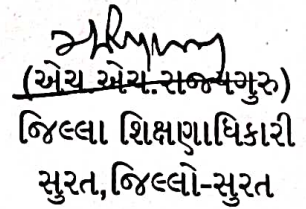 (એચ.એચ.રાજ્યગુરુ)
જિલ્લા શિક્ષણાધિકારી
સુરત,જિલ્લો-સુરત